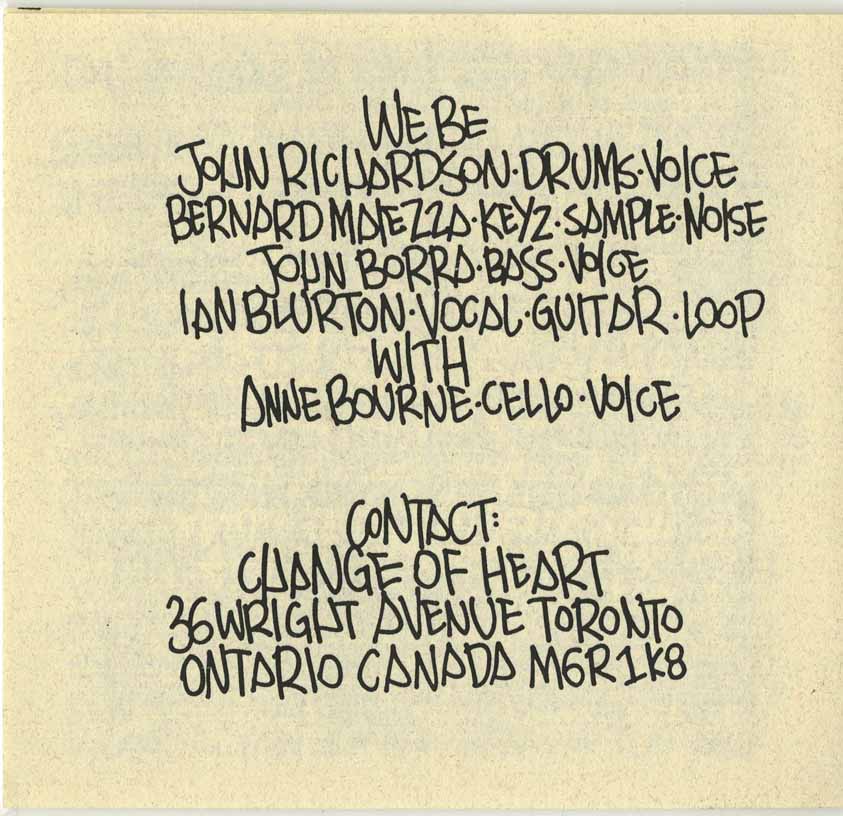 WE BE
JOHN RICHARDSON·DRUMS·VOICE
BERNARD MAIEZZA·KEYZ·SAMPLE·NOISE
JOHN BORRA·BASS·VOICE
IAN BLURTON·VOCAL·GUITAR·LOOP
WITH
ANNE BOURNE·CELLO·VOICE
CONTACT:
CHANGE OF HEART
36 WRIGHT AVENUE TORONTO
ONTARIO CANADA M6R1K8